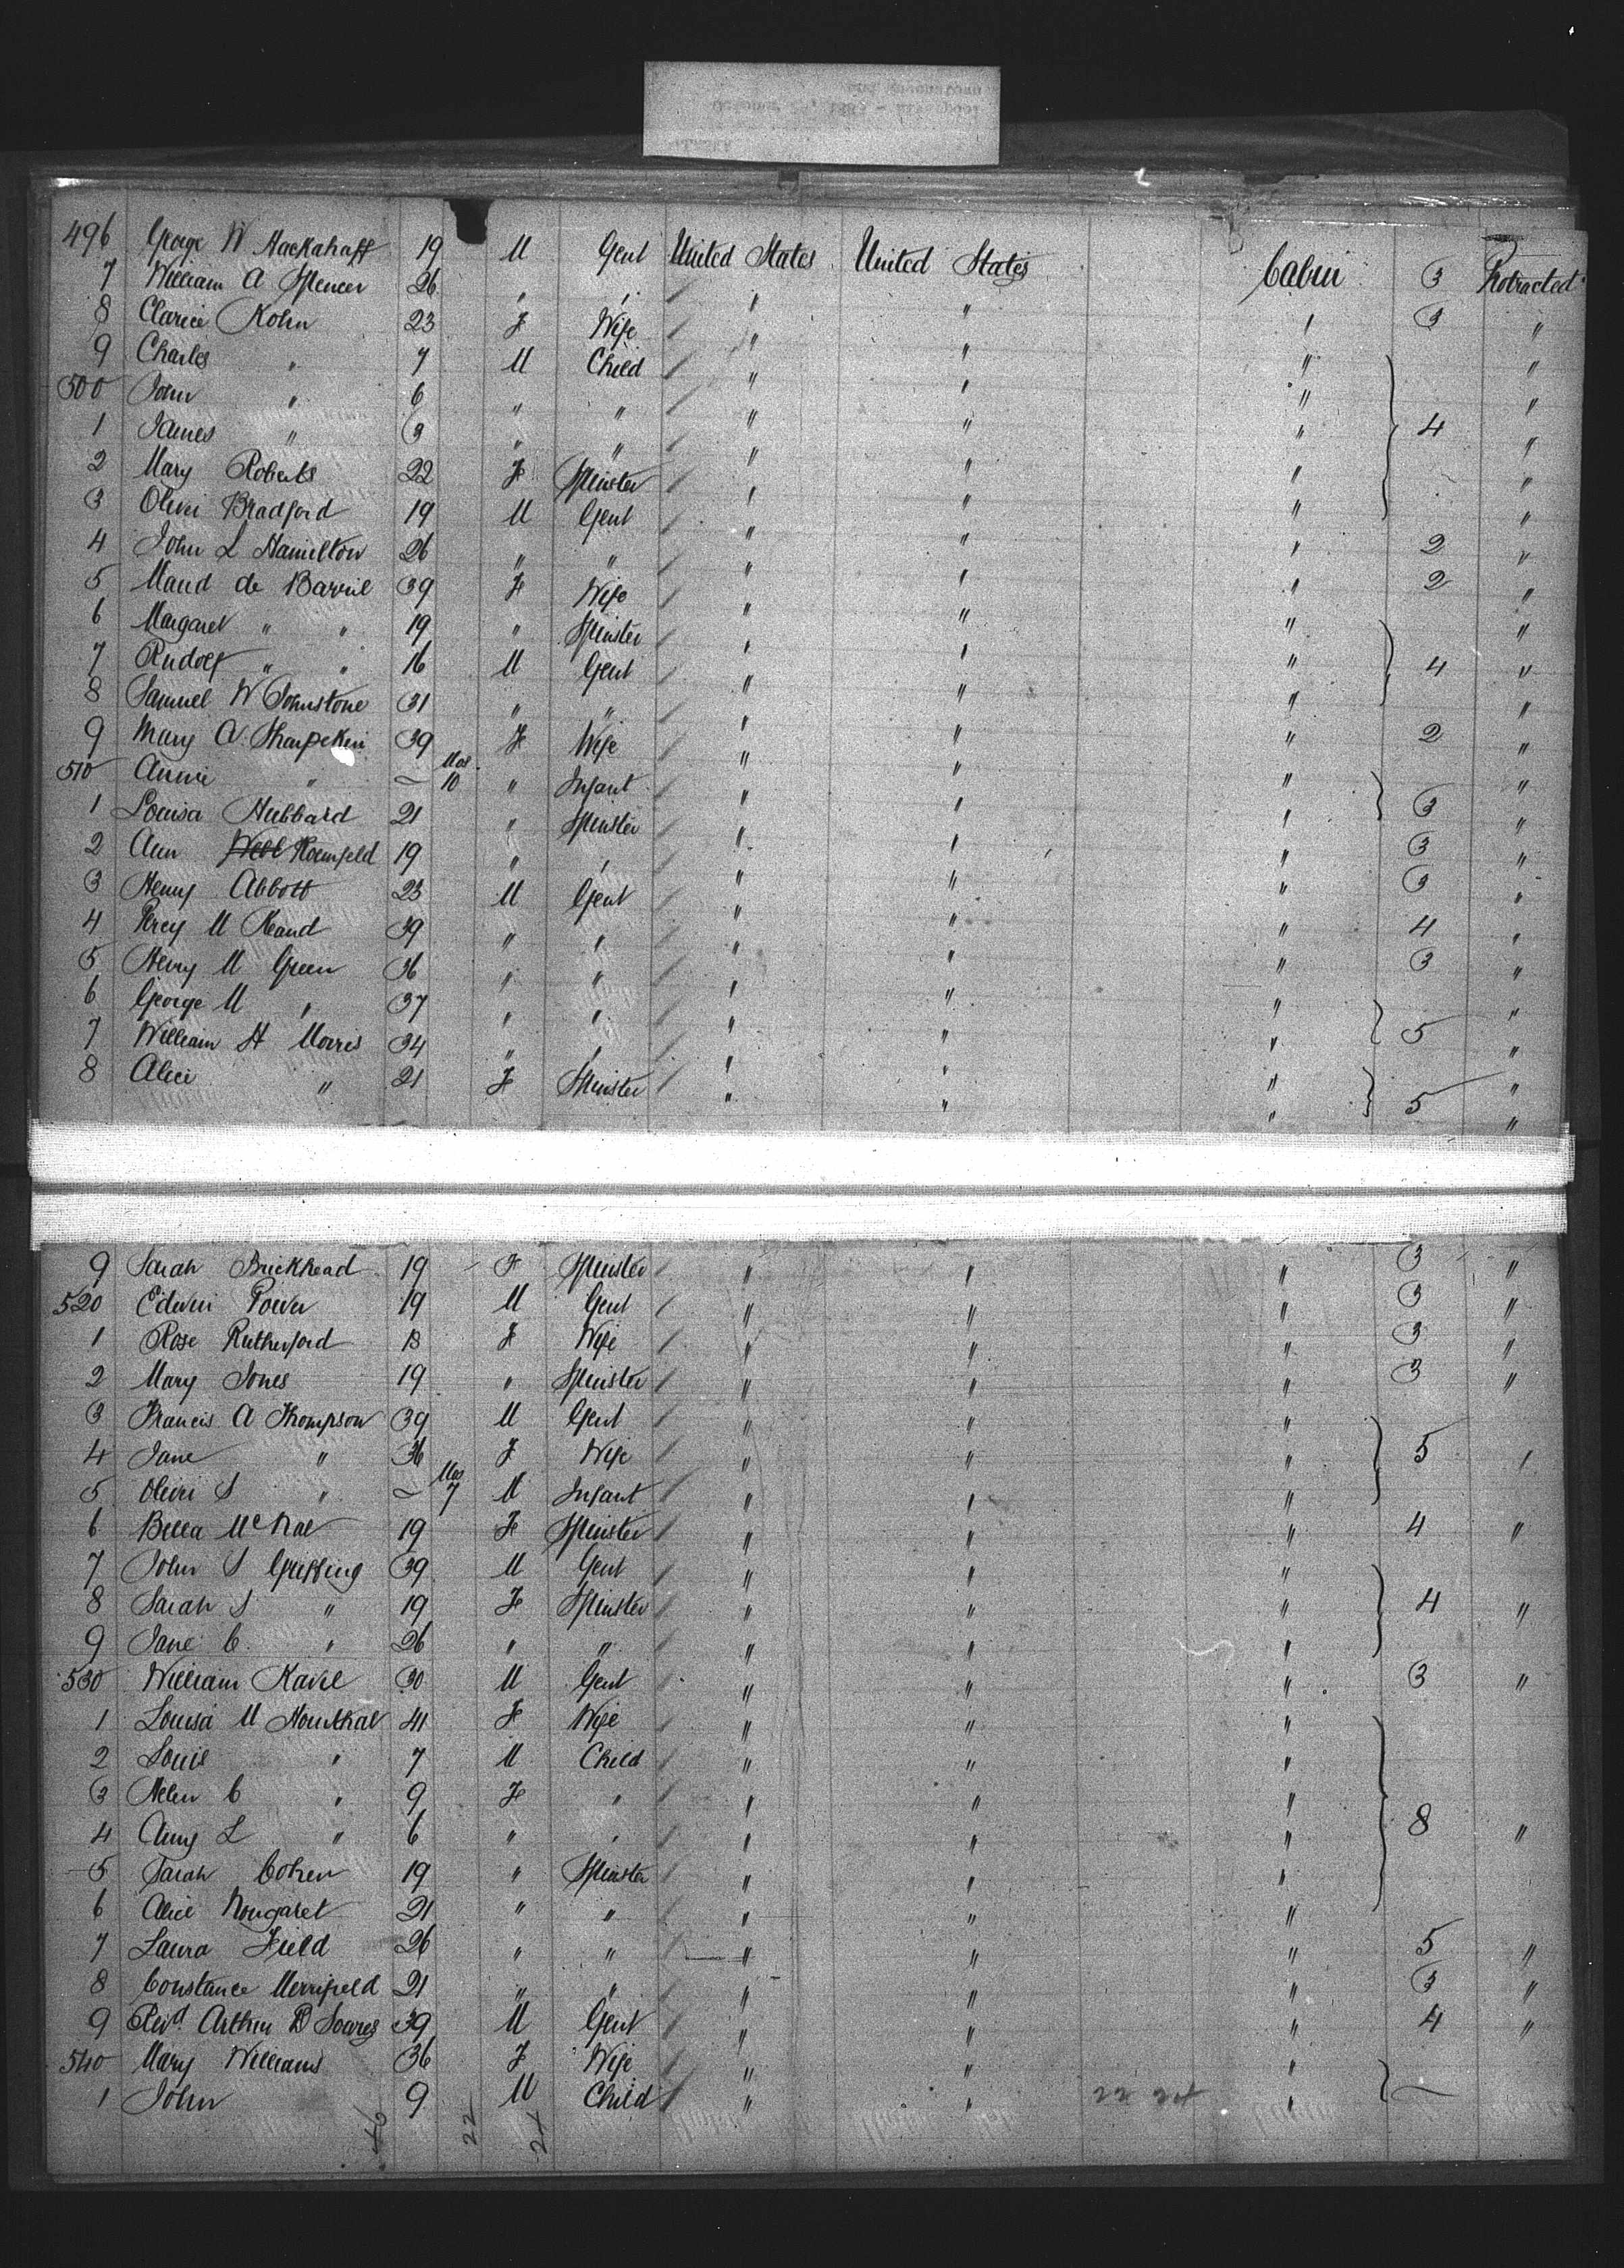 496 George W Hackahaff 19 M Gent United States United States Cabin 3 Protracted
7 William A Spencer 26 " " " " " 3 "
8 Clarice Kohn 23 F Wife " " " "
9 Charles " 7 M Child " " " "
500 John " 6 " " " " " 4 "
1 James " 3 " " " " " "
2 Mary Roberts 22 F Spinster " " " "
3 Oliver Bradford 19 M Gent " " " 2 "
4 John L Hamilton 26 " " " " " 2 "
5 Maud de Barril 39 F Wife " " " "
6 Margaret " " 19 " Spinster " " " 4 "
7 Rudolf " " 16 M Gent " " " "
8 Samuel W Johnstone 31 " " " " " 2 "
9 Mary A 39 F Wife " " " "
510 Annie " – Mos 10 " Infant " " " 3 "
1 Louisa Hubbard 21 " Spinster " " " 3 "
2 Ann Webb 19 " " " " " 3 "
3 Henry Abbott 23 M Gent " " " 4 "
4 Percy M 39 " " " " " 3 "
5 Henry M Green 36 " " " " " "
6 George M " 37 " " " " " 5 "
7 William H Morris 34 " " " " " "
8 Alice " 21 F Spinster " " " 5 "
9 Sarah Brickhead 19 F Spinster " " " 3 "
520 Edwin Power 19 M Gent " " " 3 "
1 Rose Rutherford F Wife " " " 3 "
2 Mary Jones 19 " Spinster " " " 3 "
3 Francis A Thompson 39 M Gent " " "
4 Jane " 36 F Wife " " " 5 "
5 Oliver S " – Mos 7 M Infant " " "
6 Bella McRae 19 F Spinster " " " 4 "
7 John S Griffing 39 M Gent " " "
8 Sarah S " 19 F Spinster " " " 4 "
9 Jane C " 26 " " " " "
530 William Kavil 30 M Gent " " " 3 "
1 Louisa M Hornthal 41 F Wife " " "
2 Louis " 7 M Child " " "
3 Helen C " 9 F " " " "
4 Amy L " 6 " " " " " 8 "
5 Sarah Cohen 19 " Spinster " " "
6 Alice Nougaret 21 " " " " "
7 Laura Field 26 " " " " " 5 "
8 Constance Merrifield 21 " " " " " 3 "
9 Revd Arthur D 39 M Gent " " " 4 "
540 Mary Williams 36 F Wife " " "
1 John 9 M Child " " " –
46 22 24